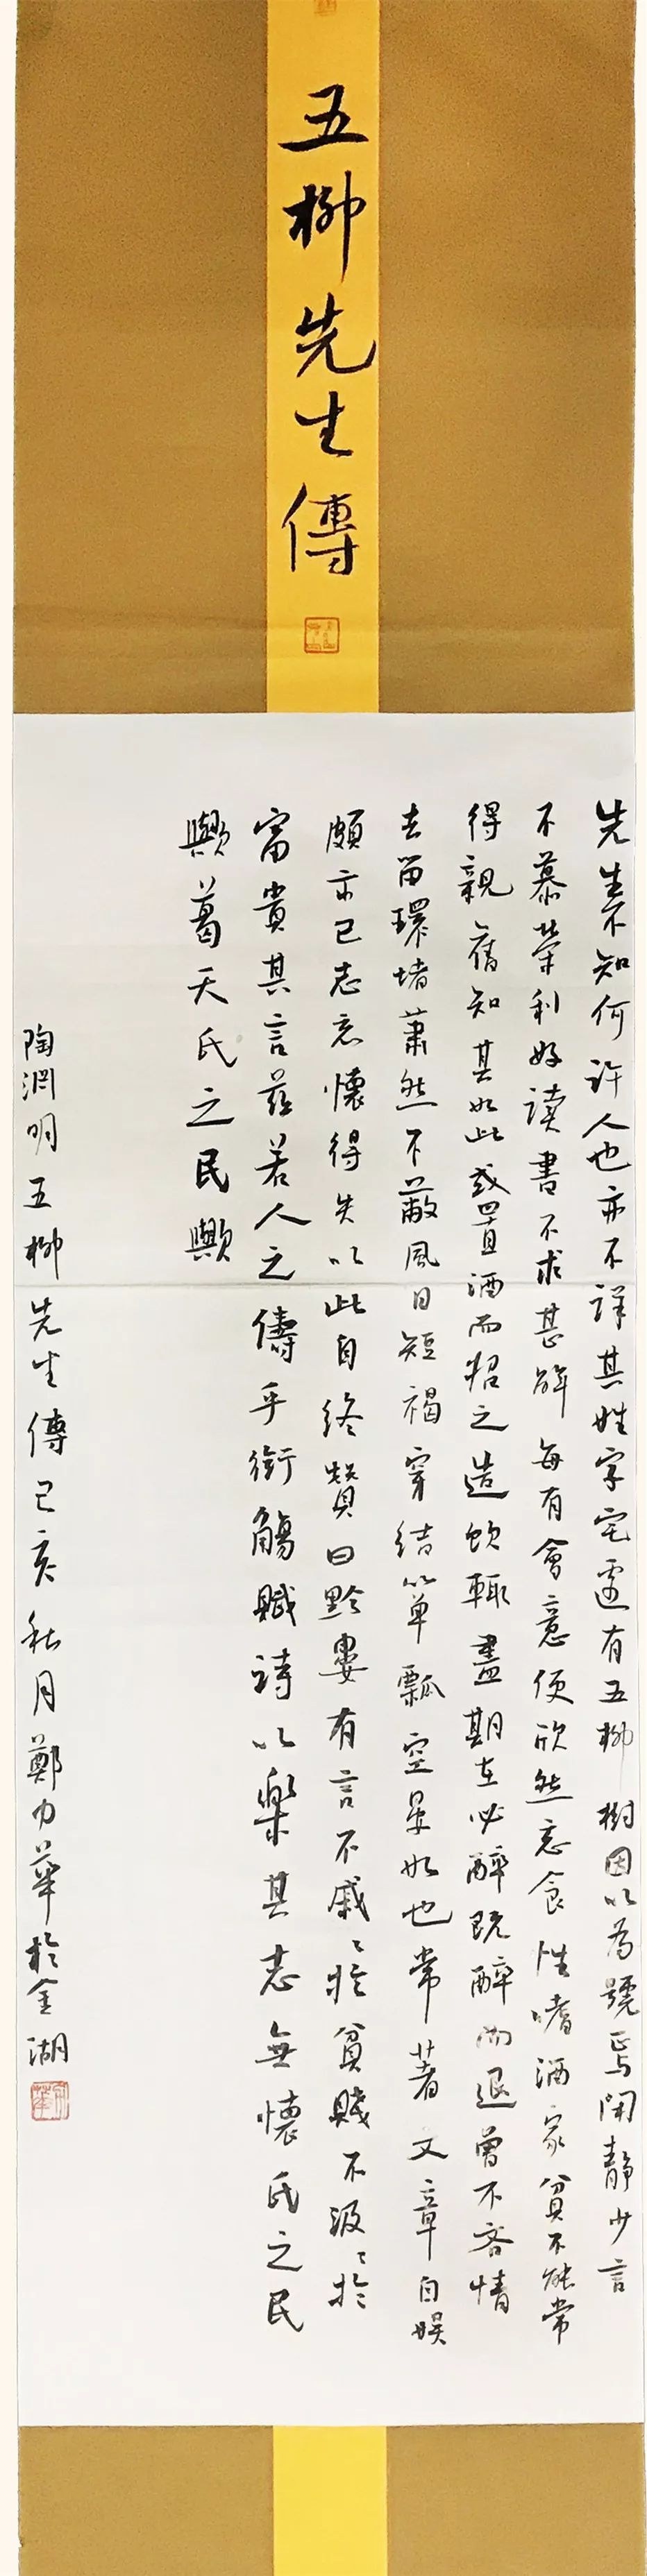 五柳先生傳
先生不知何許人也亦不詳其姓字宅邊有五柳樹因以為號焉閑靜少言
不慕榮利好讀書不求甚解每有會意便欣然忘食性嗜酒家貧不能常
得親舊知其如此或置酒而招之造飲輒盡期在必醉既醉而退曾不吝情
去留環堵蕭然不蔽風日短褐穿結簞瓢空晏如也常著文章自娛
頗示己志忘懷得失以此自終贊曰黔婁有言不戚〻於貧賤不汲〻於
富貴其言茲若人之儔乎銜觴賦詩以樂其志無懷氏之民
歟葛天氏之民歟
陶淵明五柳先生傳己亥秋月鄭力華於金湖